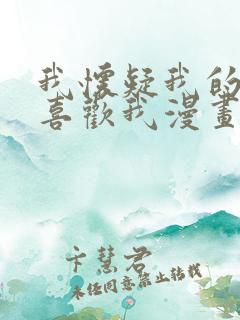 我懷疑我的
喜歡我漫畫
卡慧君
未任同意禁止转载